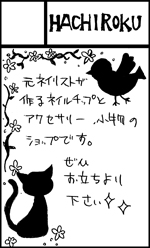 HACHIROKU
元ネイリストが
作るネイルチップと
アクセサリー 小物の
ショップです。
ぜひ
お立ちより
下さい